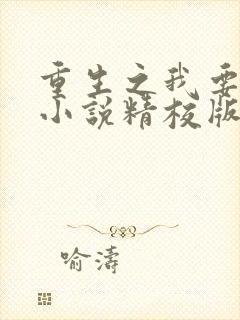 重生之我要
小说精校版
喻濤